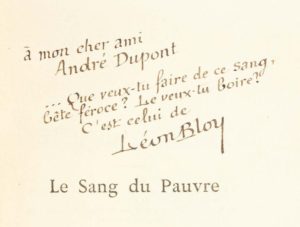 à mon cher ami
André Dupont
... Que veux-tu faire de ce sang,
bête féroce? Le veux-tu boire?
C'est celui de
Léon Bloy
Le Sang du Pauvre